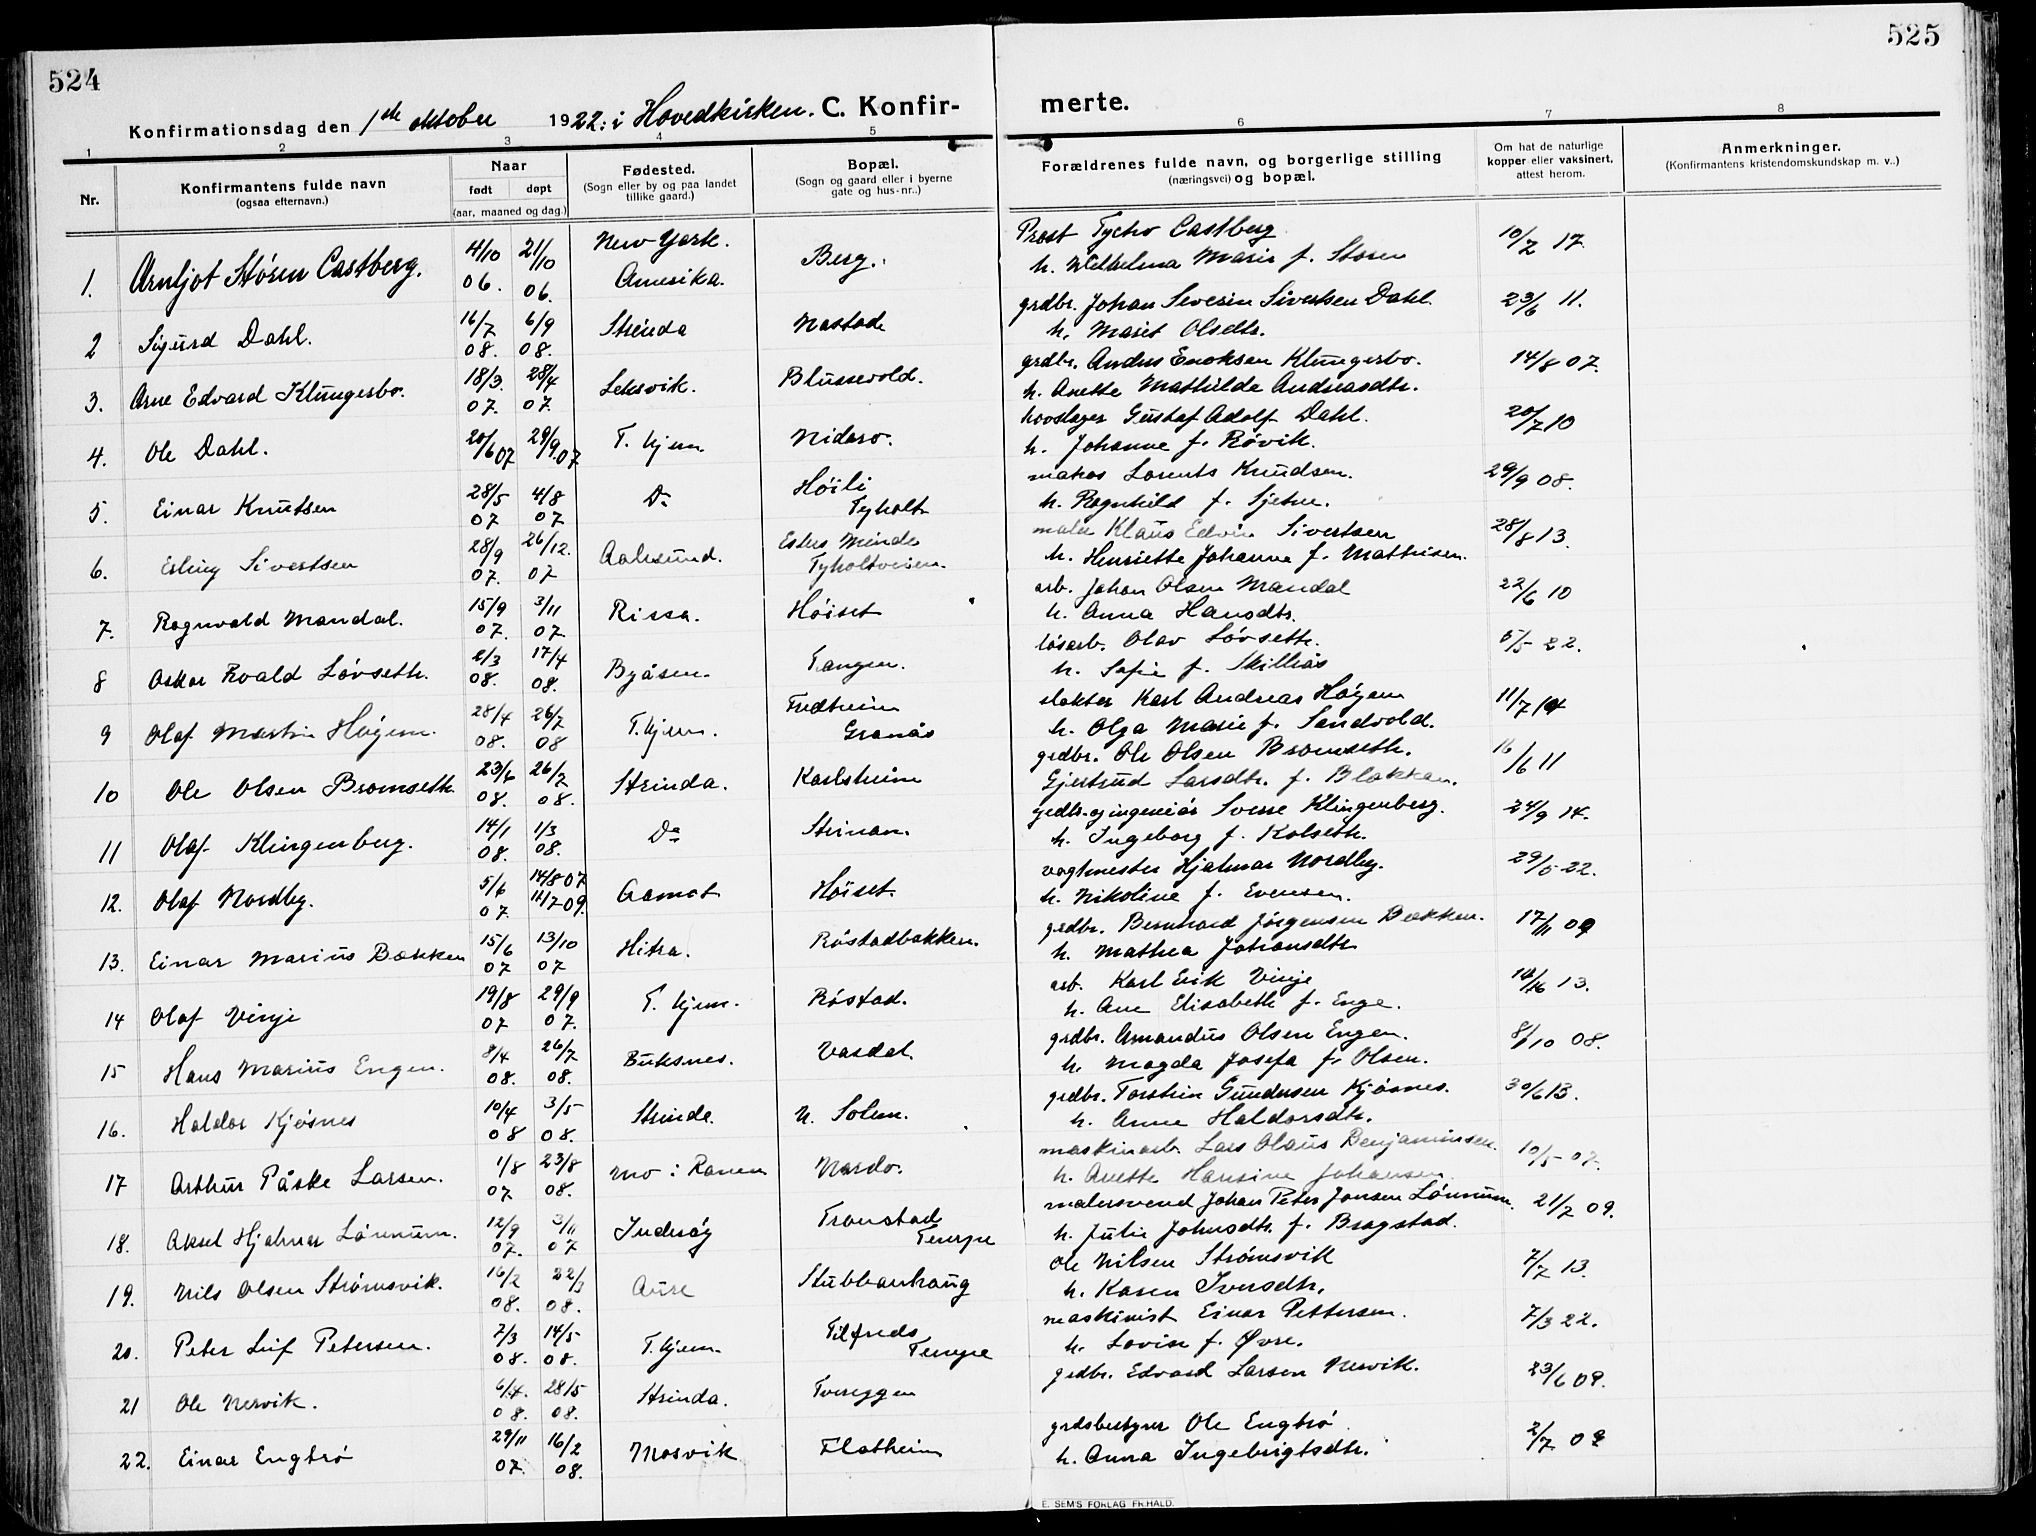 524
525
Konfirmationsdag den 1ste oktober 1922: i Hovedkirken. C. Konfir-
merte.
1 2 3 4 5 6 7 8
Nr.
Konfirmantens fulde navn
(ogsaa efternavn.)
Naar
født døpt
(aar, maaned og dag.)
Fødested.
(Sogn eller by og paa landet
tillike gaard.)
Bopæl.
(Sogn og gaard eller i byerne
gate og hus-nr..)
Forældrenes fulde navn, og borgerlige stilling
(næringsvei) og bopæl.
Om hat de naturlige
kopper eller vaksinert,
attest herom.
Anmerkninger.
(Konfirmantens kristendomskundskap m. v..)
1. Arnljot Støren Castberg. 4/10 06. 21/10 06. New York. Amerika. Berg.
Prost Tycho Castberg
h. Wilhelmina Marie f. Støren 10/7 17.
2 Sigurd Dahl. 16/7 08. 6/9 08. Strinda Nastad
grdbr. Johan Severin Sivertsen Dahl. 23/6 11.
h. Marit Olsdtr.
3. Arne Edvard Klungerbo. 18/3 07. 28/4 07. Leksvik. Blussevold.
grdbr. Anders Enoksen Klungerbo. 14/8 07.
h. Anette Mathilde Andreasdtr.
4. Ole Dahl. 20/6 07 29/9 07 T.hjem Nidarø.
hovslager Gustaf Adolf Dahl. 20/7 10
h. Johanne f. Røvik.
5. Einar Knutsen 28/5 07 4/8 07 Do Høili Tyholt
matros Lorents Knudsen. 29/9 08.
h. Ragnhild f. Sjetne.
6. Erling Sivertsen 28/9 07. 26/12. 07 Aalesund. Esters Minde Tyholtveien.
maler Klaus Edvin Sivertsen 28/8 13.
h. Henriette Johanne f. Mathisen.
7. Ragnvald Mandal. 15/9 07. 3/11 07. Rissa. Høiset
arb. Johan Olsen Mandal 22/6 10
h. Anna Hansdtr.
8 Oskar Roald Løvseth. 2/3 08. 17/4 08. Byåsen. Tangen.
løsarb. Olav Løvseth. 5/5 22.
h. Sofie f. Skilliås
9 Olaf Martin Høgem. 28/4 08. 26/7 08 T.hjem. Fredheim Granås
slakter Karl Andreas Høgem 11/7 14
h. Olga Marie f. Sandvold.
10 Ole Olsen Bromseth 23/6 08. 26/7 08. Strinda. Karlsheim
grdbr. Ole Olsen Bromseth. 16/6 11
Gjertrud Larsdtr. f. Blakkan.
11 Olaf Klingenberg. 14/1 08. 1/3 08. Do Strinan.
grdbr. og ingeniør Sverre Klingenberg. 24/9 14.
h. Ingeborg f. Kolseth.
12. Olaf Nordby. 5/6 07. 14/8 07 11/7 09. Aamot Høiset.
vagtmester Hjalmar Nordby. 29/5 22.
h. Nikoline f. Evensen.
13. Einar Marius Bækken 15/6 07 13/10 07 Hitra. Røstadbakken.
grdbr. Bernhard Jørgensen Bækken. 17/11 09
h. Mathea Johansdtr
14 Olaf Vinje 19/8 07 29/9 07. T.hjem. Røstad.
arb. Karl Erik Vinje 13.
h. Ane Elisabeth f. Enge.
15 Hans Marius Engen. 8/4 08. 26/7 08. Buksnes. Vasdal.
grdbr. Amandus Olsen Engen. 8/10 08.
h. Magda Josefa f. Olsen.
16. Haldor Kjøsnes 10/4 08 3/5 08. Strinda. N. Solem.
grdbr. Torstein Gundersen Kjøsnes. 30/6 13.
h. Anne Haldorsdtr.
17 Arthur Påske Larsen. 1/8 07. 23/8 08. Mo i Ranen Nardo.
maskinarb. Lars Olaus Benjaminsen. 10/5 07.
h. Anette Hansine Johansen
18. Aksel Hjalmar Lønnum. 12/9 07. 3/11 07 Inderøy Tronstad Tempe
malersvend Johan Peter Jonsen Lønnum. 21/7 09.
h. Julie Johnsdtr. f. Bragstad.
19. Nils Olsen Strømsvik. 16/2 08. 22/3 08. Aure Stubbanhaug
Ole Nilsen Strømsvik 7/7 13.
h. Karen Iversdtr.
20. Peter Leif Petersen. 2/3 08. 14/5 08. T.hjem. Tilfreds Tempe
maskinist Einar Pettersen. 7/3 22.
h. Lovise f. Øvre.
21 Ole Nervik. 6/4. 08. 28/5 08. Strinda. Tvereggen
grdbr. Edvard Larsen Nervik. 23/6 09.
22. Einar Engbrø 29/11 07. 16/2 08. Mosvik Flatheim
grdsbestyrer Ole Engbrø 2/7 09
h. Anna Ingebrigtsdtr.
E. SEM'S FORLAG FR.HALD.